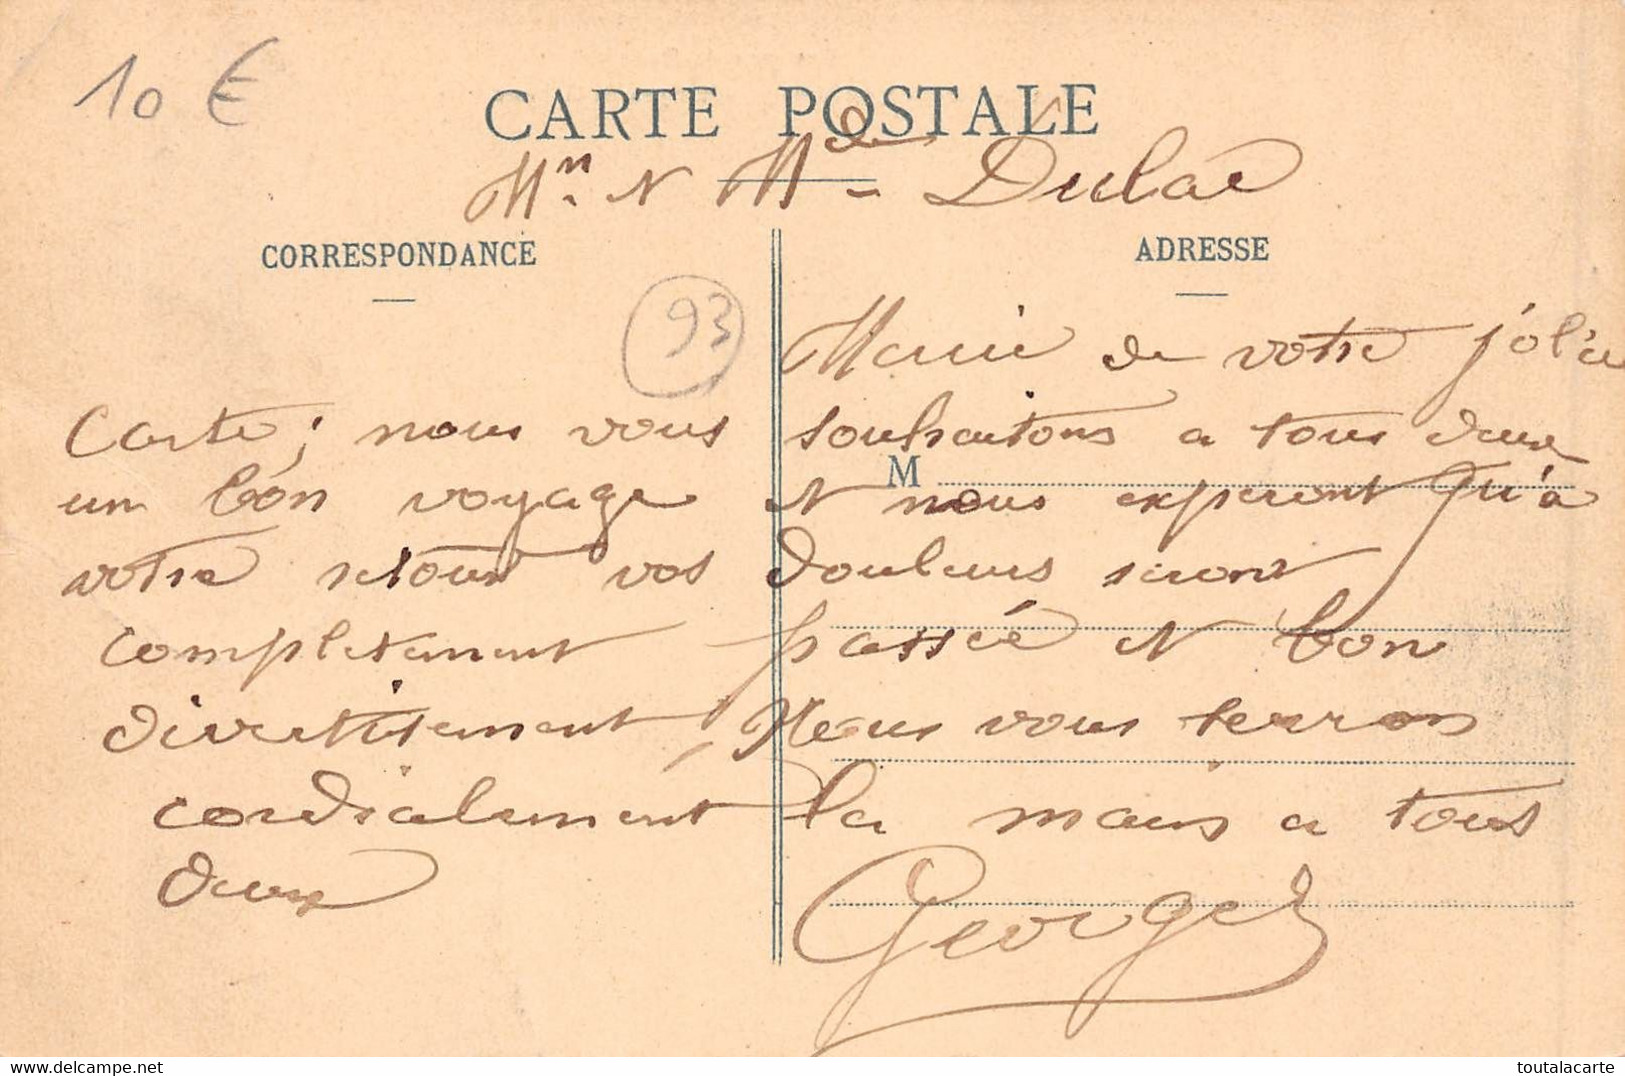 10 €
CARTE POSTALE
Mr. et Mde Dulac
CORRESPONDANCE
ADRESSE
93
Merci de votre jolie
carte; nous vous souhaitons a tous deux
M
un bon voyage et nous experont qu'a
votre retour vos douleurs seront
completement passée et bon
divertisement, Nous vous serrons
cordialement la main a tous
deux
Georges
www.delcampe.net
toutalacarte